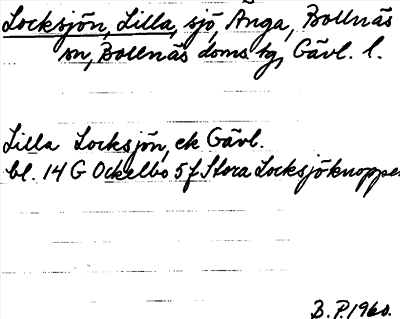 Locksjön, Lilla, sjö, Änga, Bollnäs
sn, Bollnäs doms. hg, Gävl. l.
Lilla Locksjön, ek Gävl.
bl. 14 G Ockelbo 5 f Stora Locksjöknoppe
B.P. 1960.